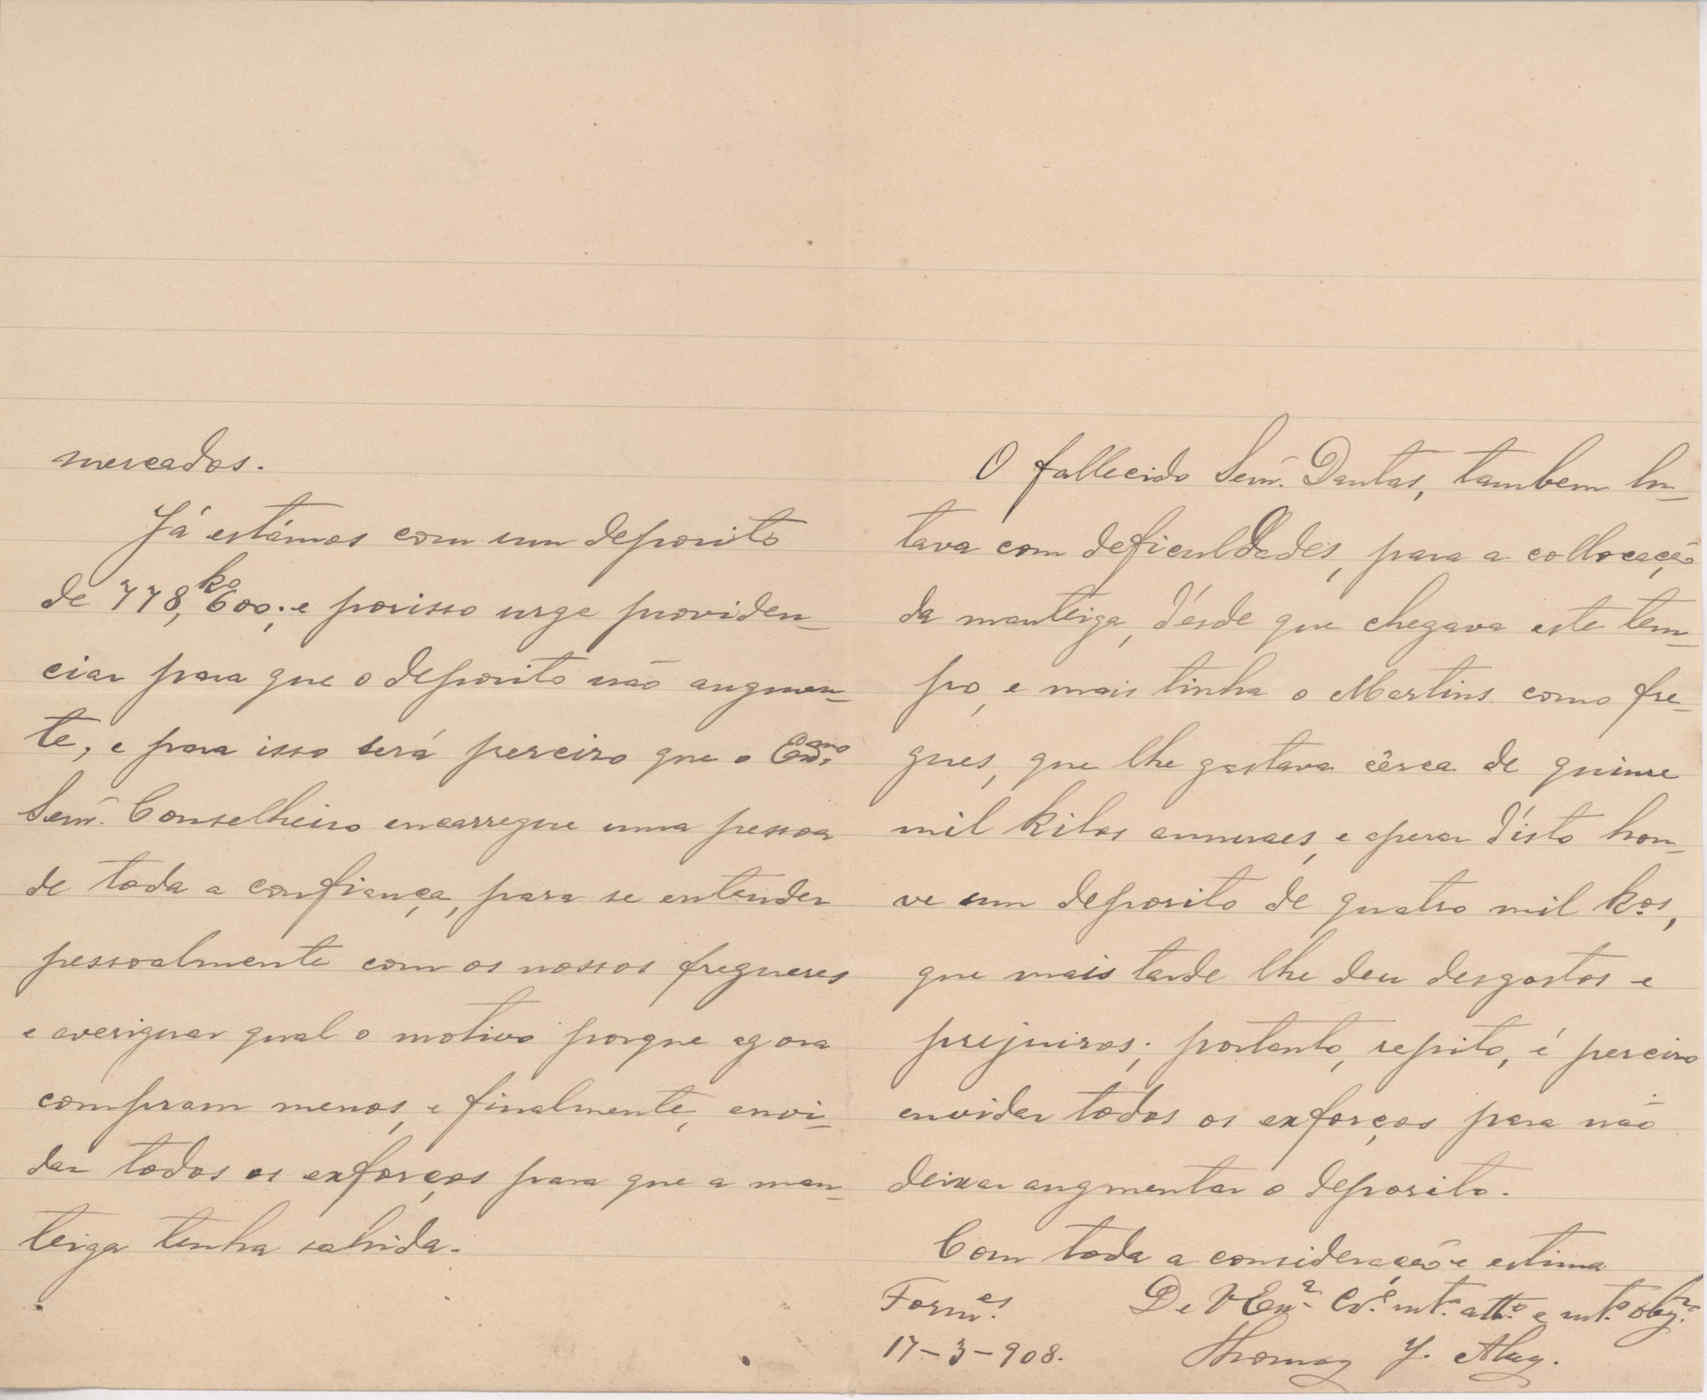 mercados.
Já estámos com um deposito
de 778,ko600; e porisso urge providen_
ciar para que o deposito não augmen_
te, e para isso será perciso que o Exmo.
Senr. Conselheiro encarregue uma pessoa
de toda a confiança, para se entender
pessoalmente com os nossos freguezes
e averiguar qual o motivo porque agora
compram menos, e finalmente, envi_
dar todos os exforços para que a man_
teiga tenha sahida.
O fallecido Senr. Dantas, tambem lu_
tava com deficuldades, para a collocação
da manteiga, d'ésde que chegava este tem_
po, e mais tinha o Martins como fre_
gues, que lhe gastava cêrca de quinze
mil kilos annuaes, e apezar d'isto hou_
ve um deposito de quatro mil kos,
que mais tarde lhe deu desgostos e
prejuizos; portanto, repito, é perciso
envidar todos os exforços para não
deixar augmentar o deposito.
Com toda a consideração e estima
Formes. De V Exa. Cr.e mto. atto. e mto. obgo.
17-3-908. Thomaz J.